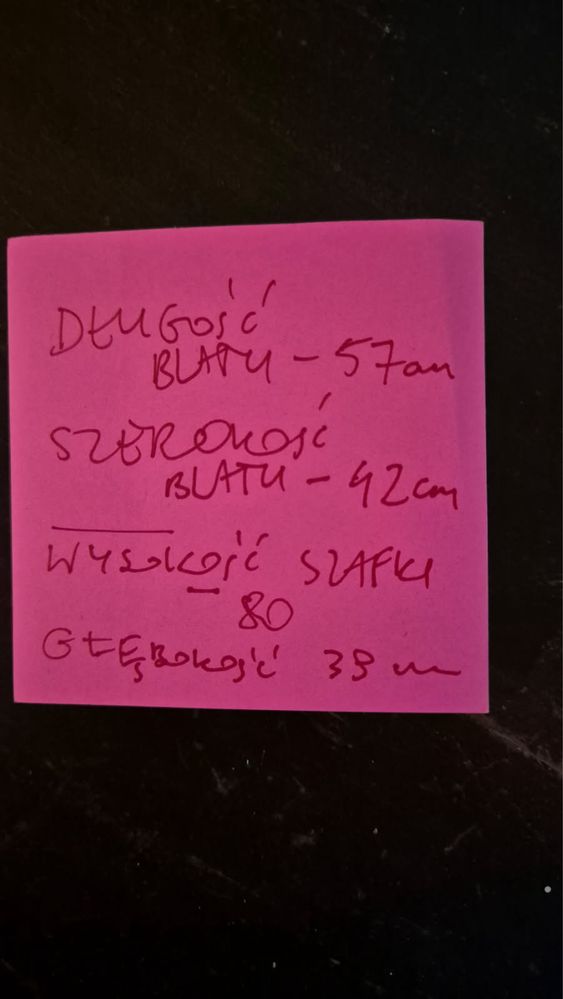 DŁUGOŚĆ
BLATU - 57cm
SZEROKOŚĆ
BLATU - 42cm
WYSOKOŚĆ SZAFKI
- 80
GŁĘBOKOŚĆ 39 cm